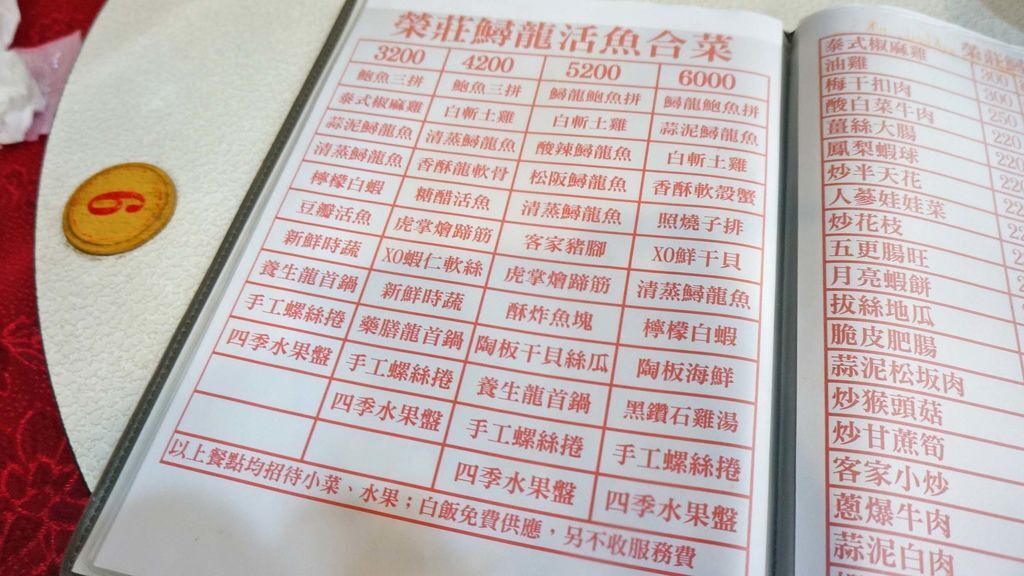 榮莊鱘龍活魚合菜
3200 4200 5200 6000
鮑魚三拼 鮑魚三拼 鱘龍鮑魚拼 鱘龍鮑魚拼
泰式椒麻雞 白斬土雞 白斬土雞 蒜泥鱘龍魚
蒜泥鱘龍魚 清蒸鱘龍魚 酸辣鱘龍魚 白斬土雞
清蒸鱘龍魚 香酥龍軟骨 松阪鱘龍魚 香酥軟殼蟹
檸檬白蝦 糖醋活魚 清蒸鱘龍魚 照燒子排
豆瓣活魚 虎掌燴蹄筋 客家豬腳 XO鮮干貝
新鮮時蔬 XO蝦仁軟絲 虎掌燴蹄筋 清蒸鱘龍魚
養生龍首鍋 新鮮時蔬 酥炸魚塊 檸檬白蝦
手工螺絲捲 藥膳龍首鍋 陶板干貝絲瓜 陶板海鮮
四季水果盤 手工螺絲捲 養生龍首鍋 黑鑽石雞湯
四季水果盤 手工螺絲捲 手工螺絲捲
四季水果盤 四季水果盤
以上餐點均招待小菜、水果；白飯免費供應，另不收服務費
6
榮莊
泰式椒麻雞 300
油雞 300
梅干扣肉 250
酸白菜牛肉 220
薑絲大腸
鳳梨蝦球
炒半天花
人蔘娃娃菜
炒花枝
五更腸旺
月亮蝦餅
拔絲地瓜
脆皮肥腸
蒜泥松坂肉
炒猴頭菇
炒甘蔗筍
客家小炒
蔥爆牛肉
蒜泥白肉